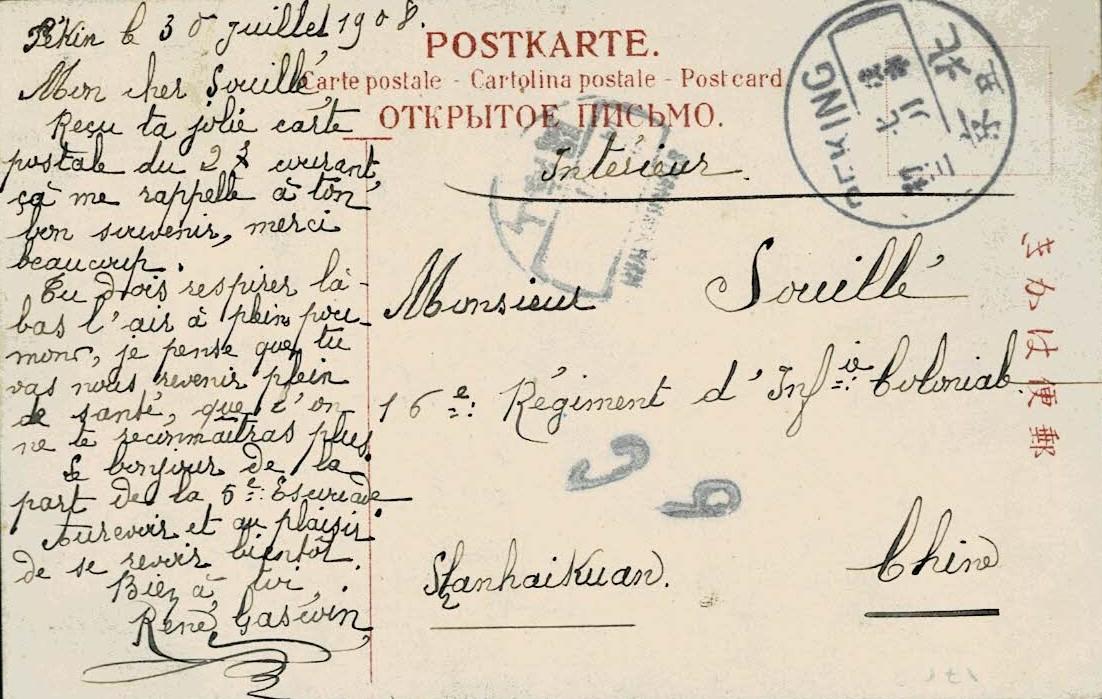 Pékin le 30 Juillet 1908.
Mon cher Souillé
Reçu ta jolie carte
postale du 27 courant
ça me rappelle à ton
bon souvenir, merci
beaucoup.
Tu dois respirer là-
bas l'air à plein pou-
mons, je pense que tu
vas nous revenir plein
de santé, que l'on
ne te reconnaîtras plus.
Le bonjour de la
part de la 5e Escouade
Aurevoir et au plaisir
de se revoir bientôt.
Bien à toi.
René
POSTKARTE.
Carte postale - Cartolina postale - Post card
ОТКРЫТОЕ ПИСЬМО.
Intérieur.
PEKING
北京
Monsieur Souillé
16e: Régiment d'Infie: Colonial
Shanhaikuan.
Chine
きかは便郵